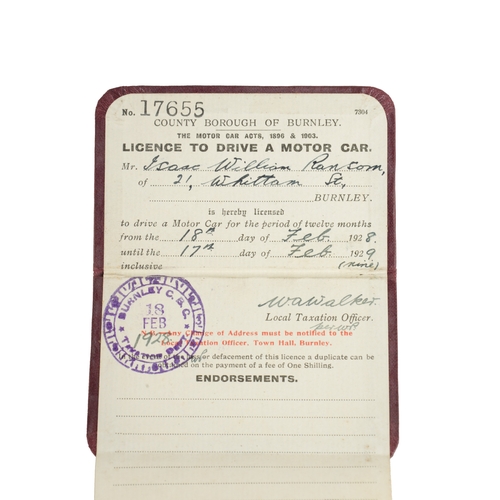 No. 17655 7304
COUNTY BOROUGH OF BURNLEY.
THE MOTOR CAR ACTS, 1896 & 1903.
LICENCE TO DRIVE A MOTOR CAR.
Mr. Isaac William Ransom,
of 21, Whittam St,
BURNLEY.
is hereby licensed
to drive a Motor Car for the period of twelve months
from the 18th day of Feb. 1928.
until the 17th day of Feb 1929
inclusive (nine)
BURNLEY C.B.C.
18
FEB
1928
TAXATION
WAWalker
Local Taxation Officer.
N.B. Any Change of Address must be notified to the
Local Taxation Officer, Town Hall, Burnley.
of the defacement of this licence a duplicate can be
obtained on the payment of a fee of One Shilling.
ENDORSEMENTS.